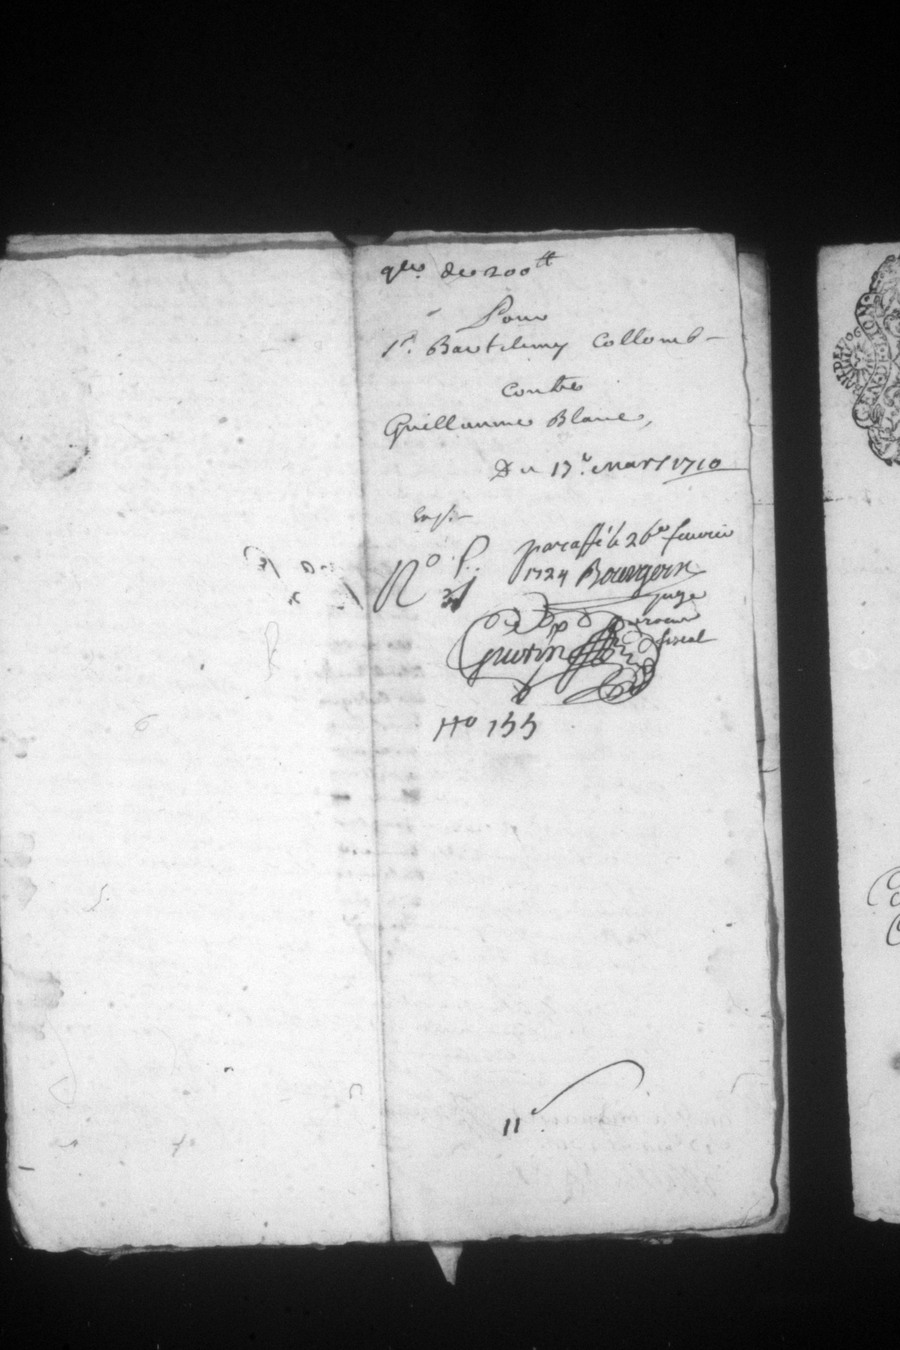 de 200tt
Pour
Sr. Bartelemy Collomb
Contre
Guillaume Blanc,
Du 13e. mars 1710
Exp.
No
paraffé le 26e feuvrier
1724 Bourgoin
juge
procureur
fiscal
Guerin
No 155
11e.